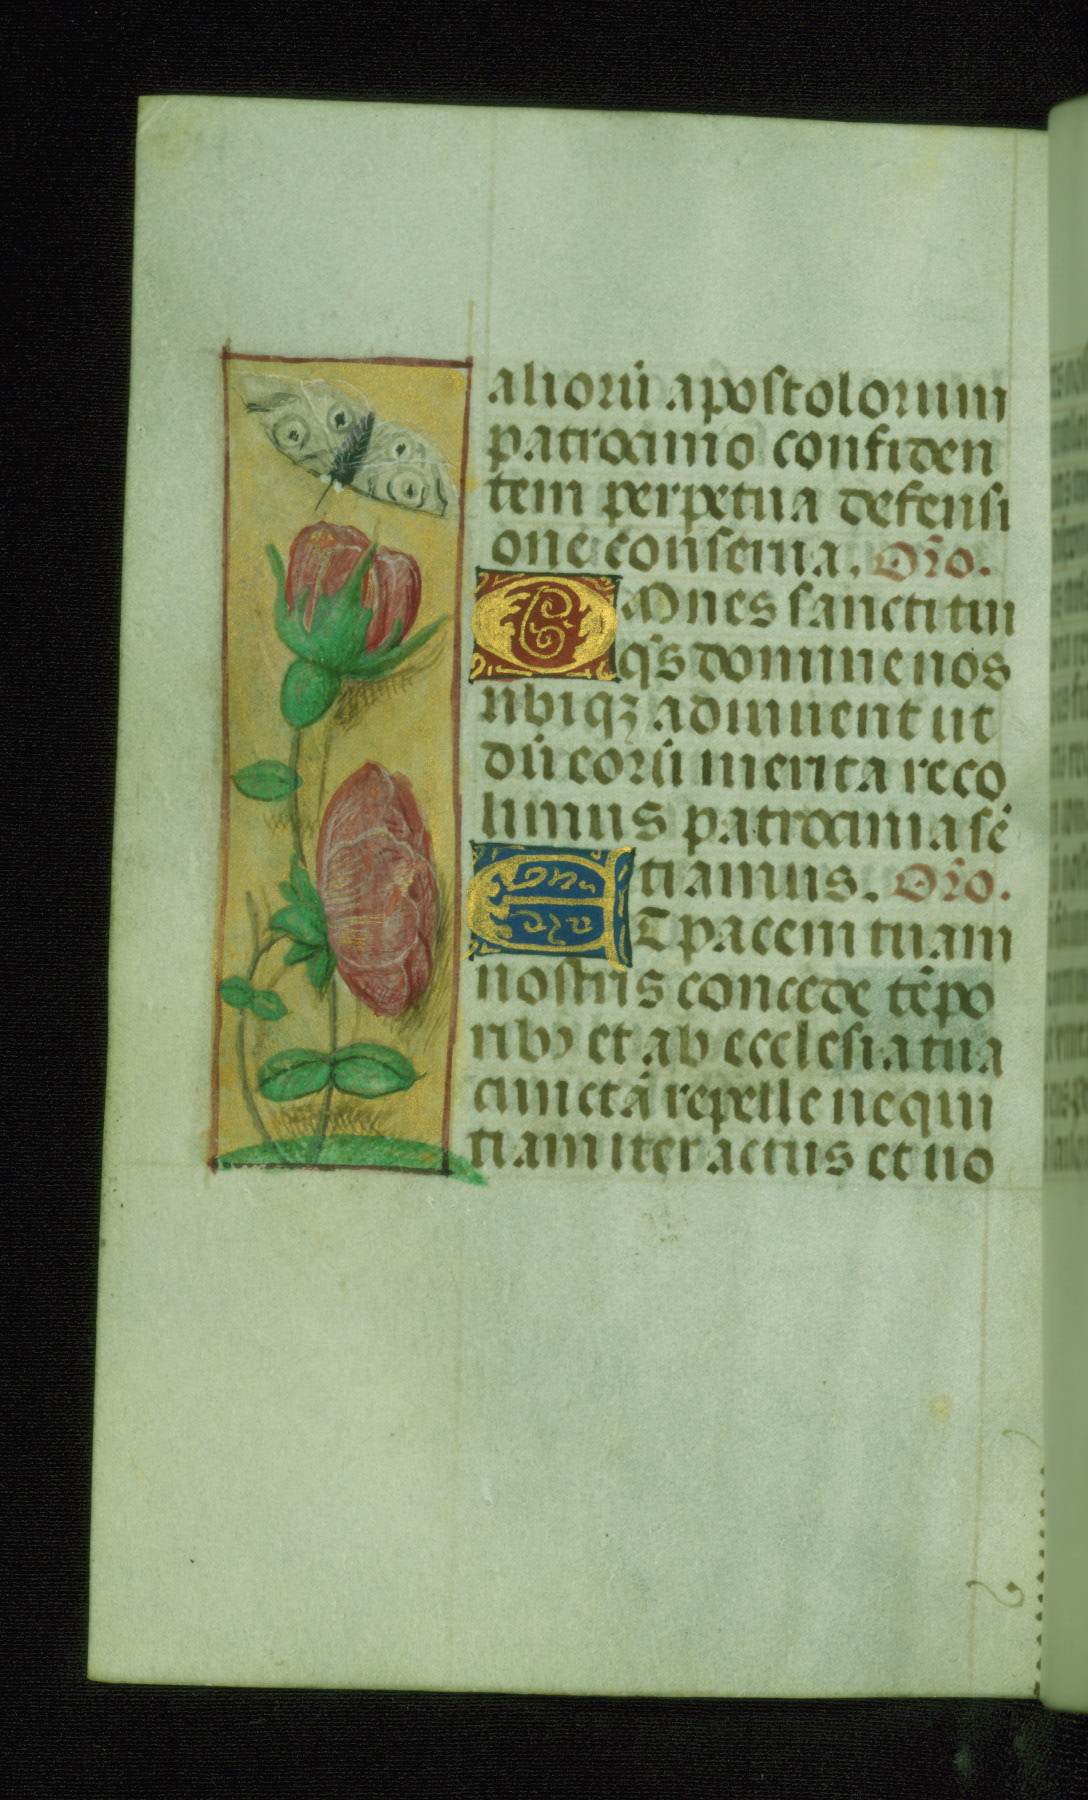 aliorū apostolorum
patrocinio confiden
tem perpetua defensi
one conserua. Or̄o.
Omnes sancti tui
q̄s domine nos
ubiqꝫ adiuuent ut
dū eorū merita reco
limus patrocinia sē
tiamus. Or̄o.
ET pacem tuam
nostris concede tēpo
ribꝰ et ab ecclesia tua
cunctā repelle nequi
tiam iter actus et uo